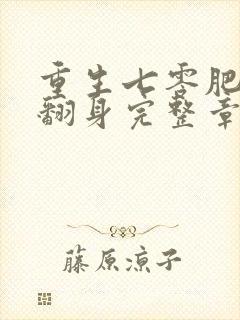 重生七零肥
翻身完整章
藤原凉子